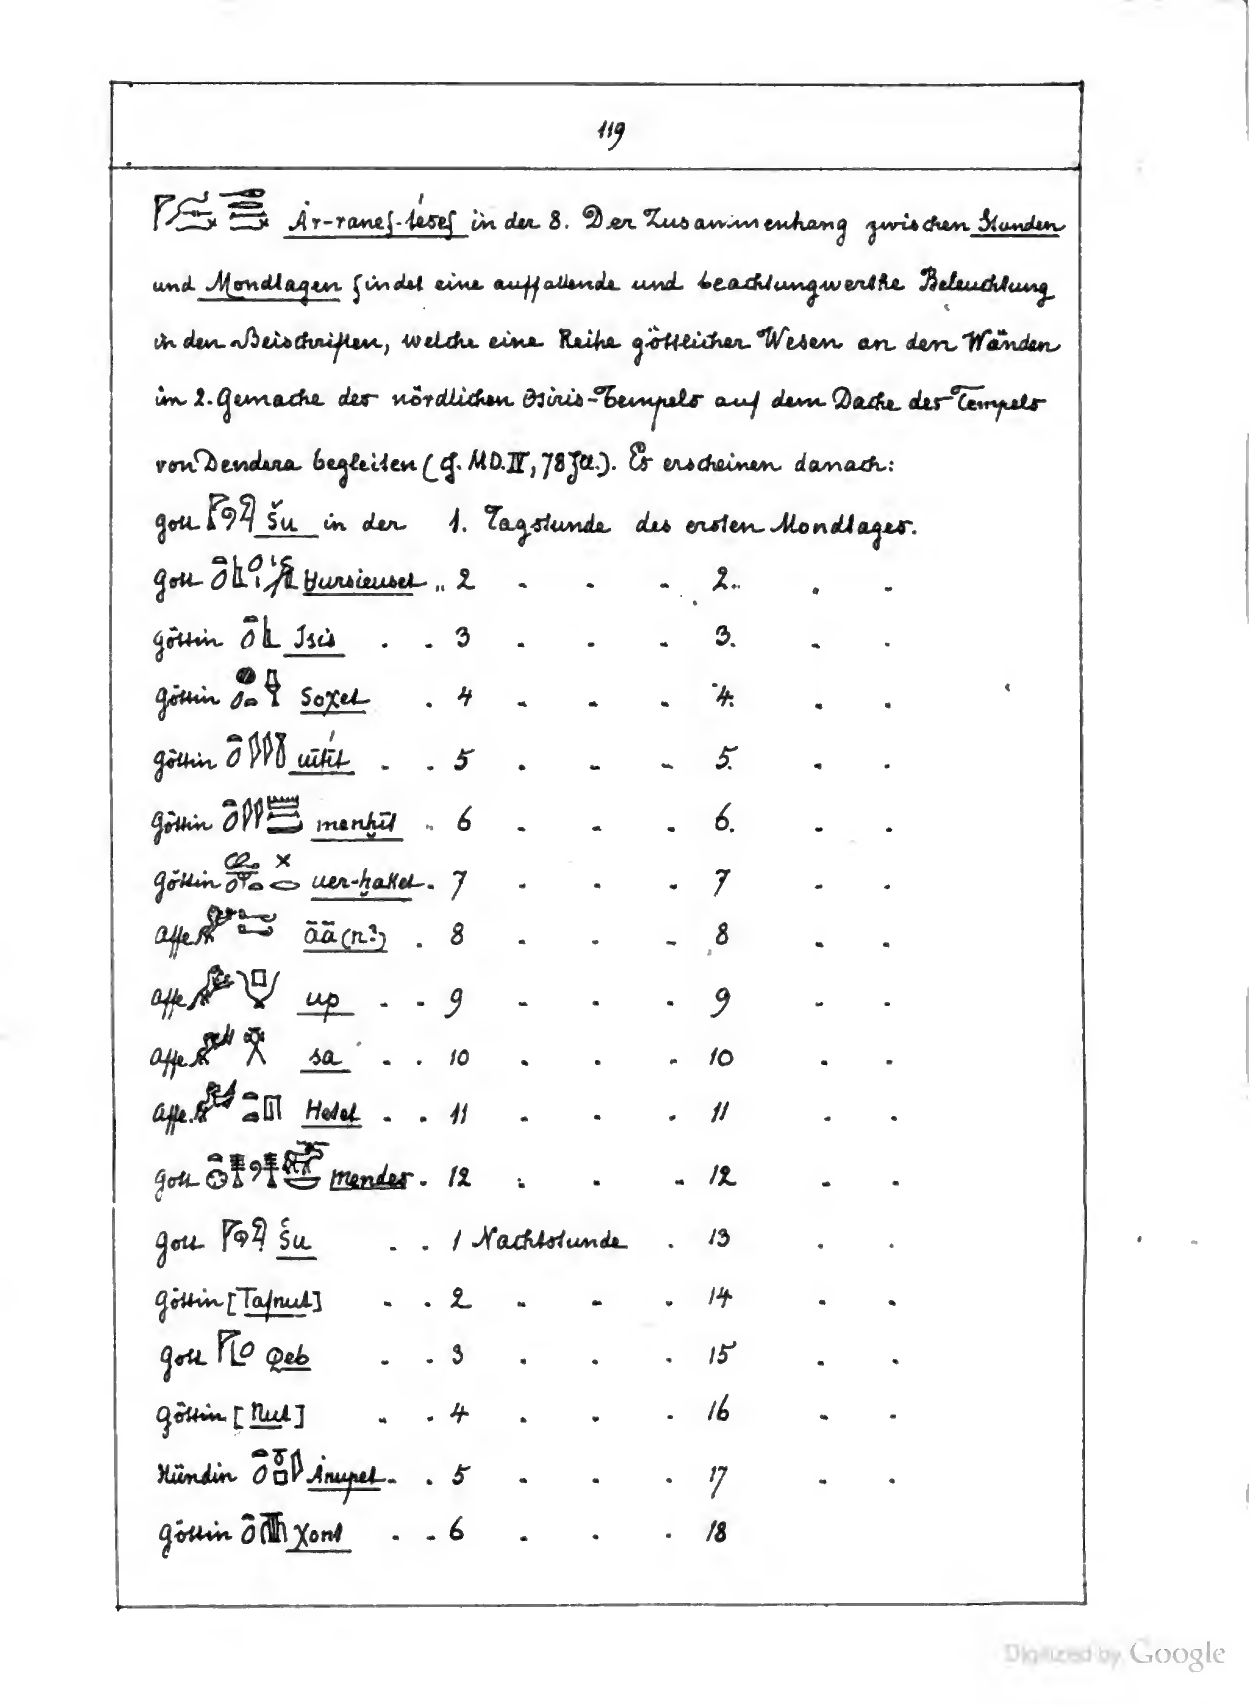 119
Ȧr-ranef-t́esef in der 8. Der Zusammenhang zwischen Stunden
und Mondtagen findet eine auffallende und beachtungwerthe Beleuchtung
in den Beischriften, welche eine Reihe göttlicher Wesen an den Wänden
im 2. Gemache des nördlichen Osiris-Tempels auf dem Dache des Tempels
von Dendera begleiten (cf. MD. IV, 78 fll.). Es erscheinen danach:
gott Šu in der 1. Tagstunde des ersten Mondtages.
gott Hursieuset „ 2 - - - 2. . -
göttin Isis . . 3 - - - 3. - .
göttin Soχet . 4 - - - 4. . .
göttin . . 5 . - - 5. . .
göttin menḫīt . 6 . - . 6. - .
göttin uer-ḥaket . 7 . . . 7 - .
affe āā (n?) . 8 . . - 8 . .
affe up . . 9 - . . 9 . .
affe sa . . 10 . . . 10 . .
affe Hetet . . 11 . . . 11 . .
gott Mendes . 12 . . . 12 . .
gott Šu . . 1 Nachtstunde . 13 . .
göttin [Tafnut] . . 2 . . . 14 . .
gott Qeb . . 3 . . . 15 . .
göttin [Nut] . . 4 . . . 16 . .
Hündin Ȧnupet . . 5 . . . 17 . .
göttin χont . . 6 . . . 18
Digitized by Google